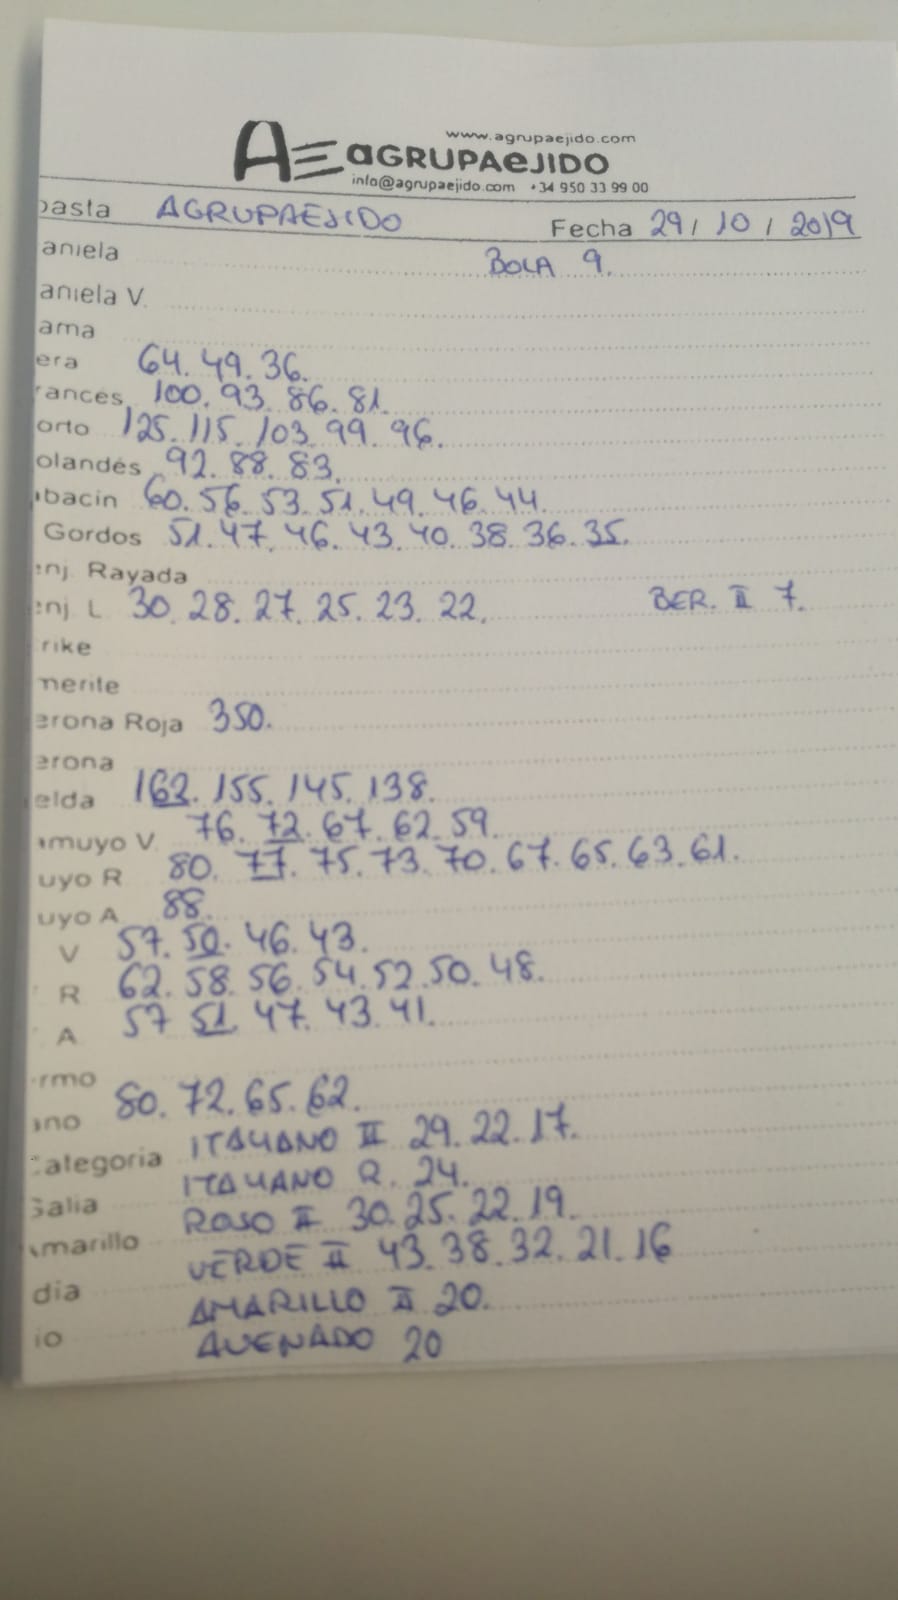 www.agrupaejido.com
AE aGRUPAeJIDO
info@agrupaejido.com +34 950 33 99 00
basta AGRUPAEJIDO Fecha 29/10/2019
aniela BOLA 9.
aniela V.
ama
era 64.49.36.
rancés 100.93.86.81.
orto 125.115.103.99.96.
olandés 92.88.83.
bacin 60.56.53.51.49.46.44.
Gordos 51.47.46.43.40.38.36.35.
enj. Rayada
enj L 30.28.27.25.23.22. BER. II 7.
rike
merite
erona Roja 350.
erona
elda 162.155.145.138.
amuyo V. 76.72.67.62.59.
uyo R 80.77.75.73.70.67.65.63.61.
uyo A 88.
V 57.50.46.43.
R 62.58.56.54.52.50.48.
A 57 51.47.43.41.
rmo
ano 80.72.65.62.
Categoria ITALIANO II 29.22.17.
Galia ITALIANO R. 24.
amarillo ROJO II 30.25.22.19.
dia VERDE II 43.38.32.21.16
io AMARILLO II 20.
AVENADO 20